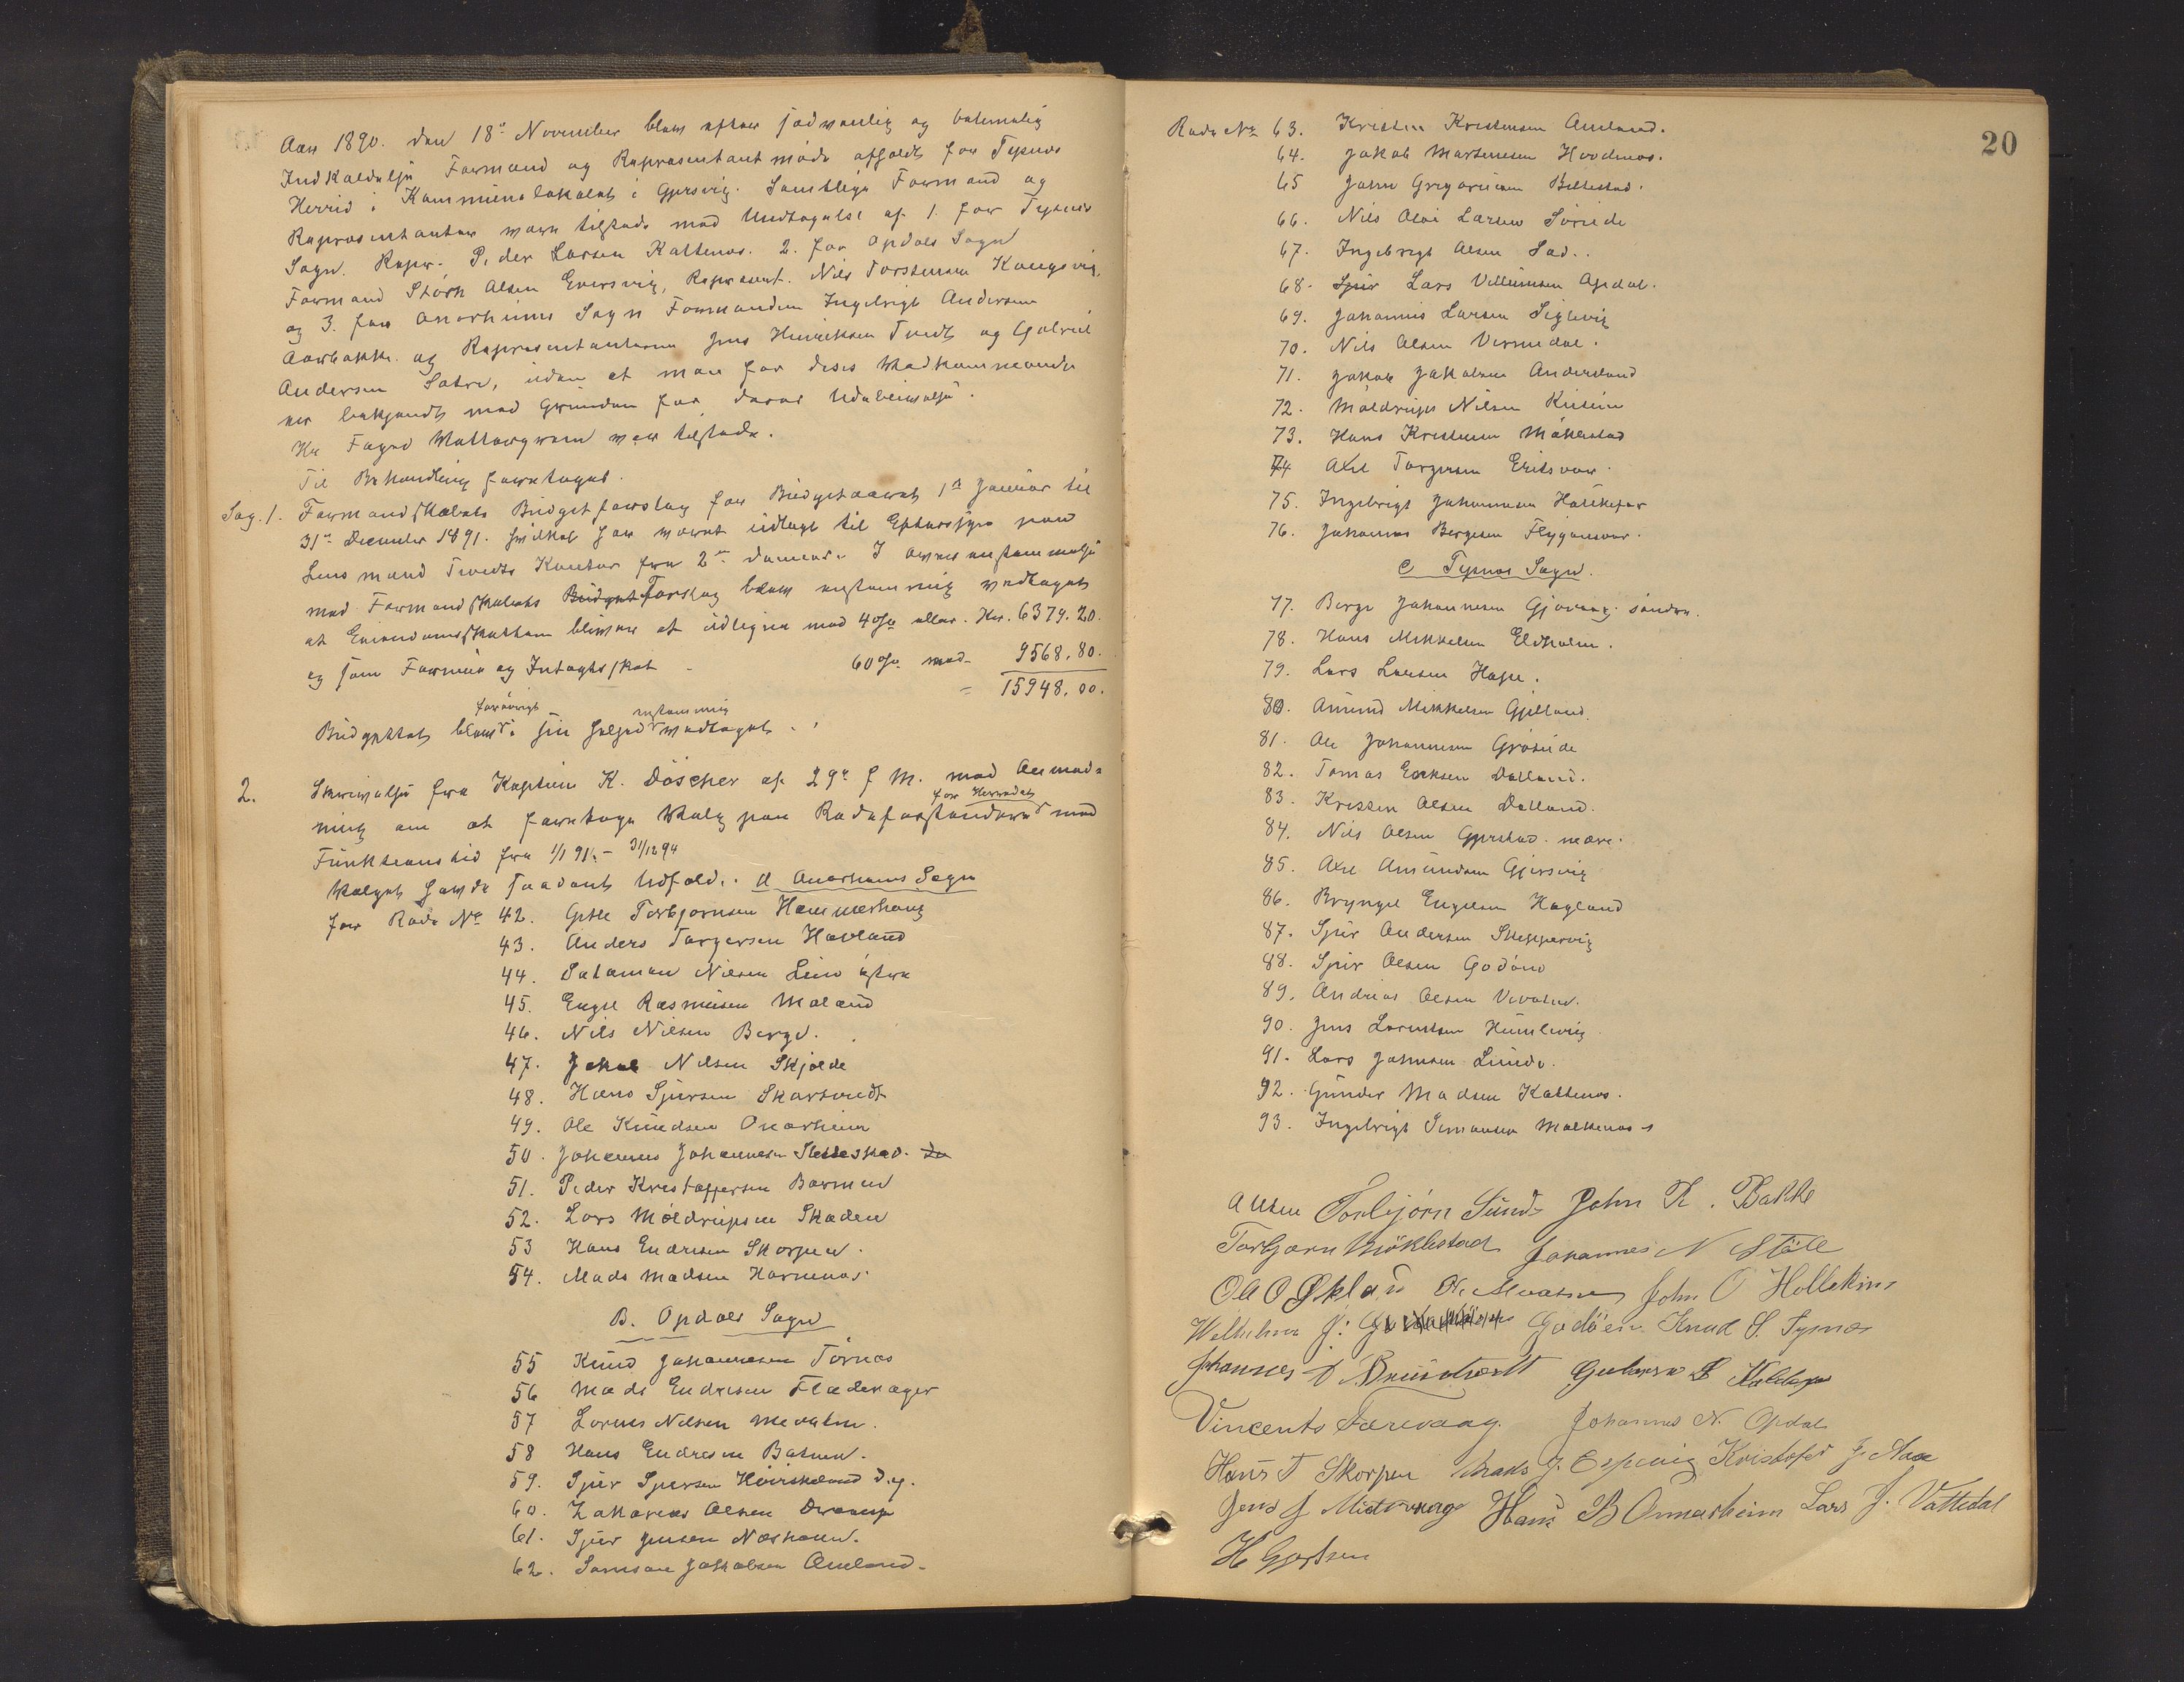 Aar 1890. den 18de November blev efter sædvanlig og betimelig
Indkaldelse Formand og Repræsentantmøde afholdt for Tysnes
Herred i Kommunelokalet i Gjersvig. Samtlige Formænd og
Repræsentanter vare tilstede med Undtagelse af 1. for Tysnes
Sogn. Repr. Peder Larsen Kattenes. 2. for Opdals Sogn
Formand Størk Olsen Eversvig, Repræsent. Nils Torstensen Kongsvig.
og 3. for Onarheims Sogn Formanden Ingebrigt Andersen
Aarbakke. og Repræsentanterne Jens Henriksen Tvedt og Gabriel
Andersen Sætre, uden at man for disses Vedkommende
er bekjendt med Grunden for deres Udeblivelse.
Hr Foged Wattergreen var tilstede.
Til Behandling foretoges.
Sag. 1. Formandskabets Budgetforslag for Budgetaaret 1ste Januar til
31te December 1891. hvilket har været udlagt til Eftersyn paa
Lensmand Tvedts Kontor fra 2den dennes. I overensstemmelse
med Formandskabets Budget Forslag blev enstemmig vedtaget
at Eiendomsskatten bliver at udligne med 40% eller Kr. 6379.20.
og som Formue og Indtægtsskat - 60% med 9568,80.
= 15948,00.
forøvrigt enstemmig
Budgettet blev i sin Helhed vedtaget.
2. Skrivelse fra Kaptein K. Döscher af 29de f. M. med Anmod-
for Herredet
ning om at foretage Valg paa Rodeforstandere med
Funktionstid fra 1/1 91 - 31/12 94
Valget havde saadant Udfald. A Onarheims Sogn
for Rode No 42. Gitle Torbjørnsen Hammerhaug
43. Anders Torgersen Hovland
44. Salamon Nilsen Lien østre
45. Engel Rasmusen Møland
46. Nils Nilsen Berge.
47. Jakob Nilsen Skjolde
48. Hans Sjursen Skarsvedt
49. Ole Knudsen Onarheim
50. Johannes Johannesen
51. Peder Kristoffersen Barmen
52. Lars Møldrupsen Skaden
53 Hans Endresen Skorpen.
54. Mads Madsen Hornenes.
B. Opdals Sogn
55 Knud Johannesen Tørnes
56 Mads Endresen Fladerager
57 Lorens Nilsen Mevatn.
58 Hans Endresen Botnen.
59. Sjur Sjursen Høviskeland d.y.
60. Zakarias Olsen
61. Sjur Jensen Neshavn.
62. Samson Jakobsen Ameland.
20
Rode No 63. Kristen Kristensen Ameland.
64. Jakob Martinesen Hovdenes.
65 John Gregoriusen Beltestad.
66. Nils Olai Larsen Søreide
67. Ingebrigt Olsen Lad.
68. Sjur Lars Villumsen Opdal.
69. Johannis Larsen Siglevig
70. Nils Olsen Vernedal.
71. Jakob Jakobsen Andersland
72. Møldrup Nilsen
73. Hans Kristensen Møklestad
74 Axel Torgersen Eritsvær.
75. Ingebrigt Johannesen
76. Johannes Bergesen Flygansvær.
C Tysnes Sogn.
77. Berge Johannesen Gjøvaag søndre.
78. Hans Mikkelsen Eldholm.
79. Lars Larsen Hope.
80. Amund Mikkelsen Gjelland.
81. Ole Johannesen Grøseide
82. Tomas Eriksen Dalland.
83. Kristen Olsen Dalland.
84. Nils Olsen Gjerstad. nedre.
85. Axel Amundsen Gjersvig
86. Brynjel Engelsen Hegland
87. Sjur Andersen Skeppervig
88. Sjur Olsen Godøen
89. Andreas Olsen Vevatne.
90. Jens Lorentsen Humlevig
91. Lars Johnsen Lunde.
92. Gunder Madsen Kattenes.
93. Ingebrigt Simonsen Malkenes
A Olsen Torbjørn Sunde John R. Bakke
Torbjørn Møklestad Johannes N Støle
Ole O Økland John O Hollekim
Wilhelm J. Godøen Knud S. Tysnes
Johannes
Vincents Færevaag. Johannes N. Opdal
Hans T Skorpen Mads J. Espevig Kristofer J. Aase
Jens J Midtvaage Hans B Onnarheim Lars J. Vattedal
H Gjertsen